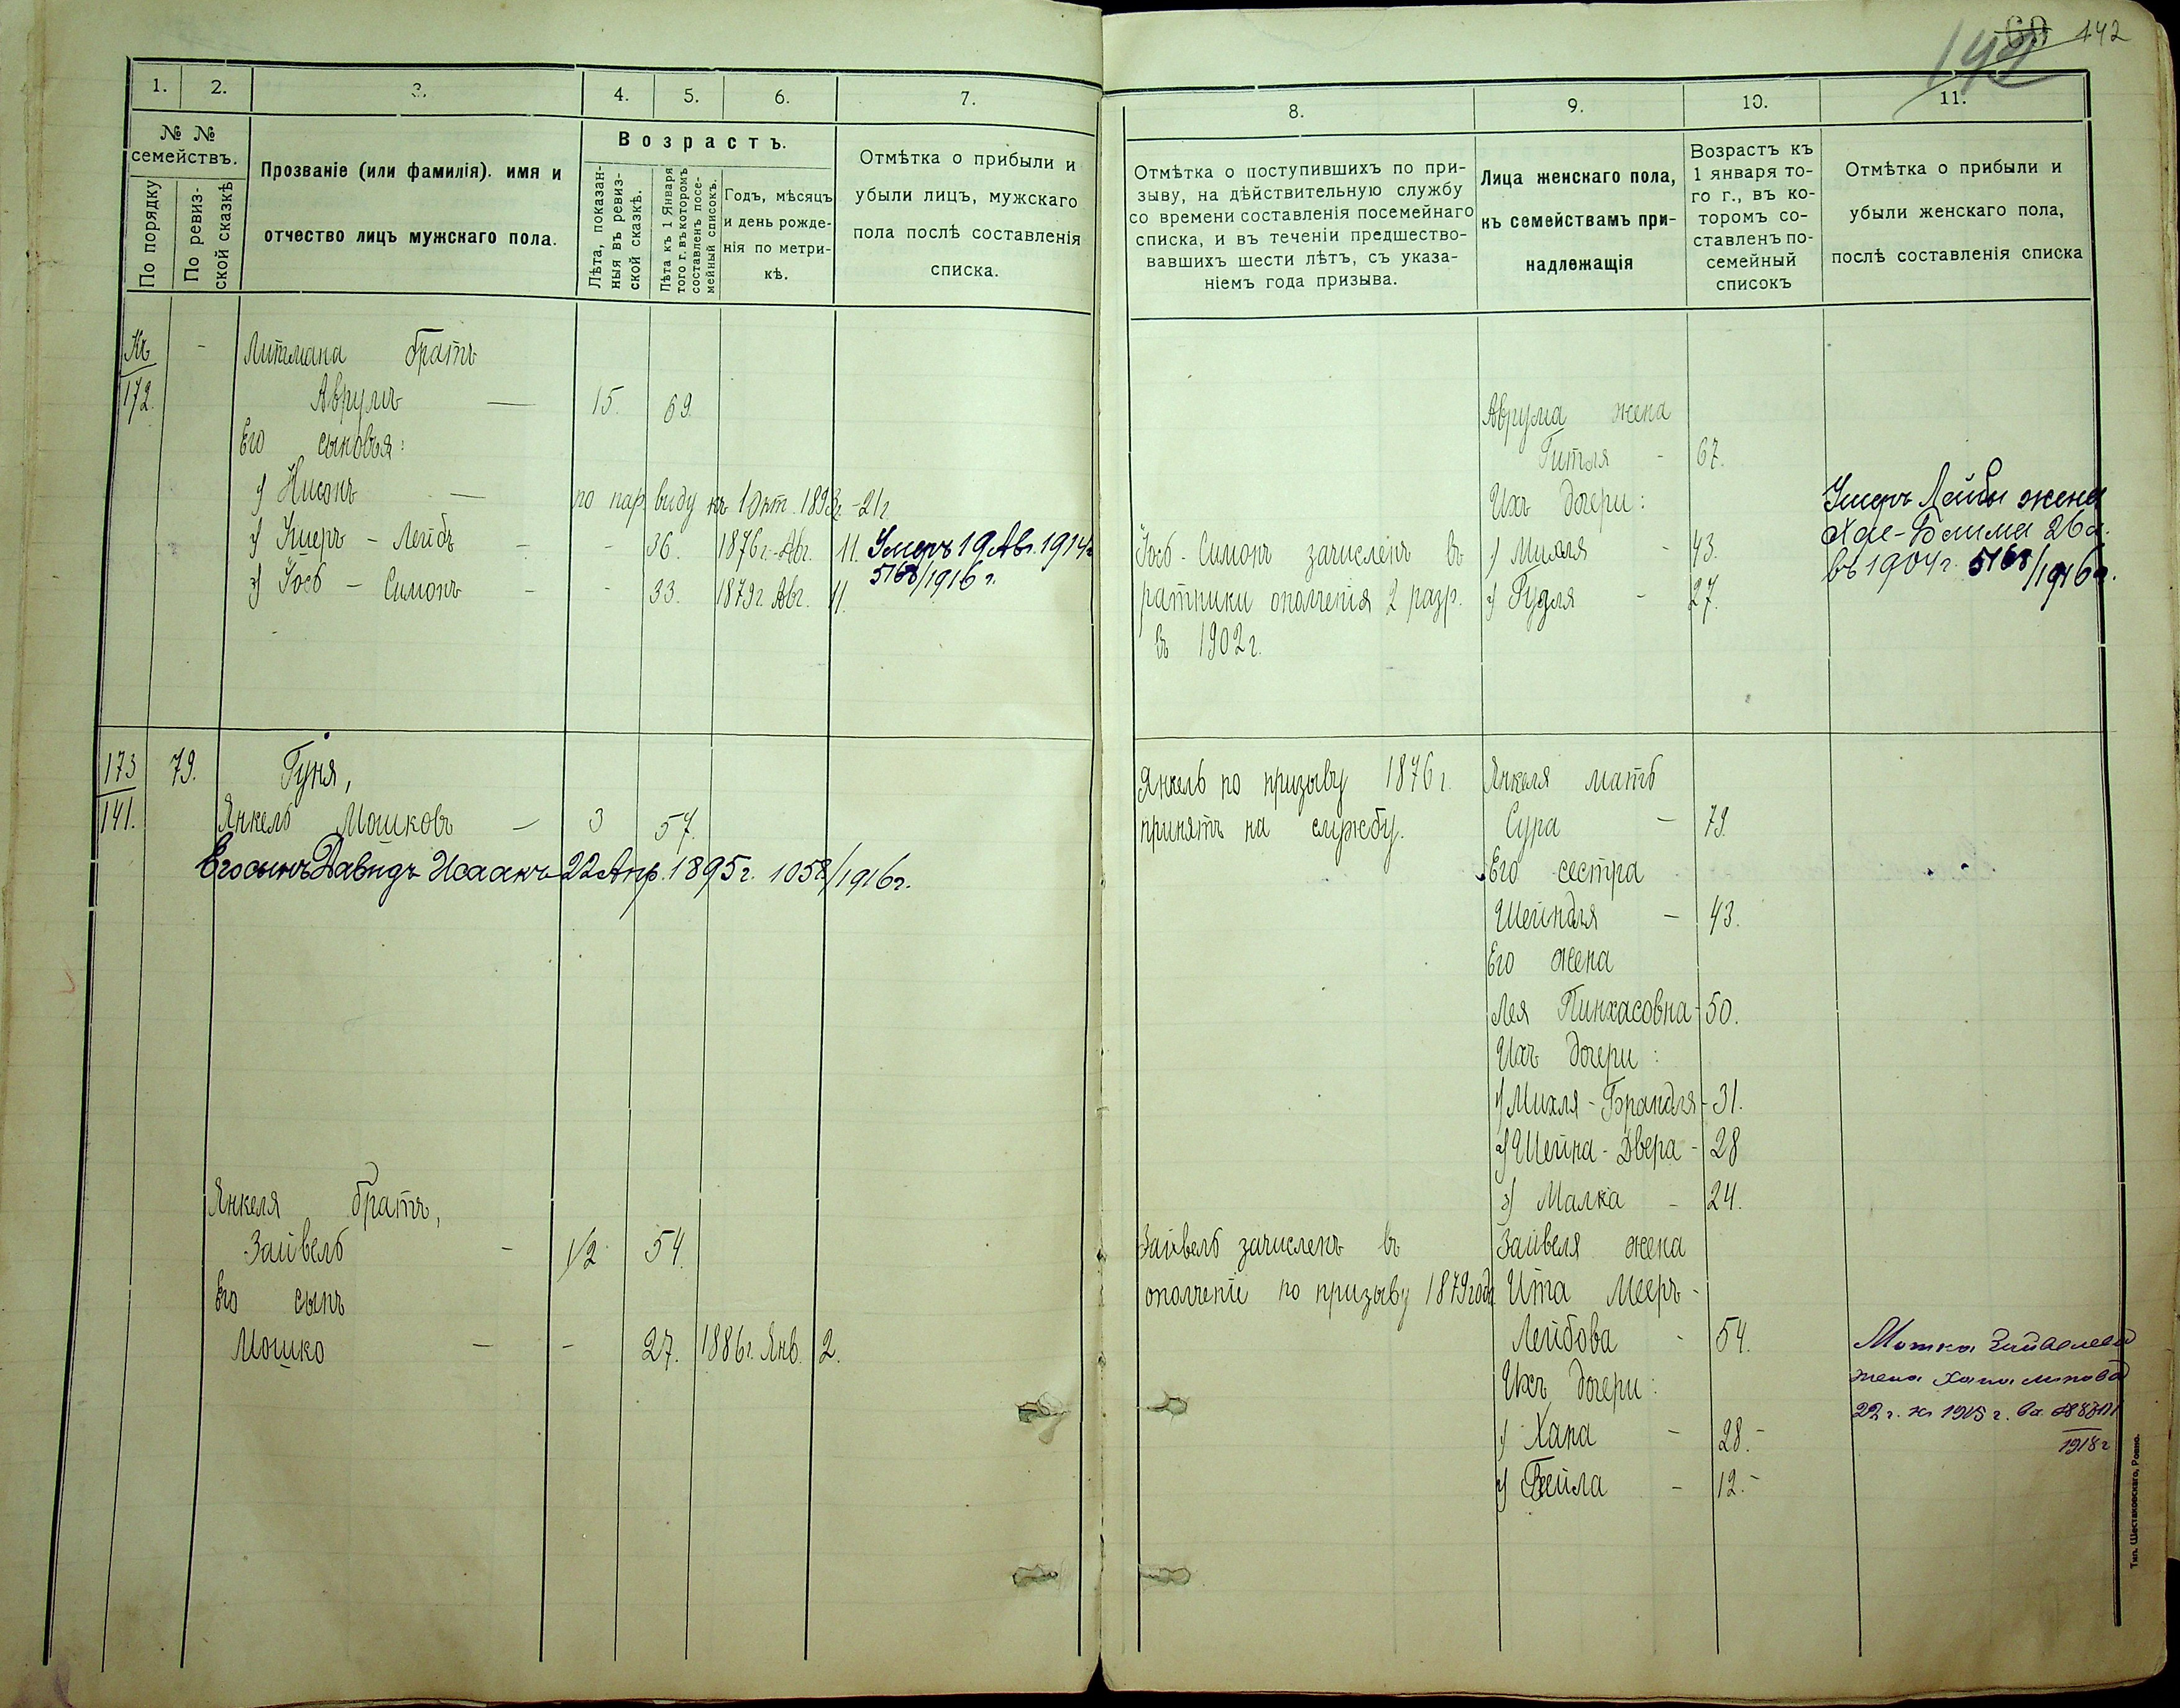 60 142
142
1. 2. 3. 4. 5. 6. 7.
№ № семействъ.
По порядку
По ревизской сказкѣ
Прозваніе (или фамилія). имя и
отчество лицъ мужскаго пола.
Возрастъ.
Лѣта, показан-
ныя въ ревиз-
ской сказкѣ.
Лѣта къ 1 Января
того г. въ которомъ
составленъ посе-
мейный списокъ.
Годъ, мѣсяцъ
и день рожде-
нія по метри-
кѣ.
Отмѣтка о прибыли и
убыли лицъ, мужскаго
пола послѣ составленія
списка.
Къ
172. -
Литмана братъ
Аврумъ — 15. 69.
Его сыновья:
1) Нисонъ — по нар. виду къ 1 Окт. 1893г. - 21г
2) Умеръ - Лейбъ - - 36. 1876г. Авг. 11. Умеръ 19 Авг. 1914г
5168/1916 г.
3) Іосъ - Симонъ - - 33. 1879г. Авг. 11.
173 79. Гуня,
141. Янкель Мошковъ — 3 57.
Его сынъ Давидъ Исаакъ 22 Апр. 1895г. 1058/1916г.
Янкеля братъ,
Зайвель - 1/2 54.
Его сынъ
Мошко — - 27. 1886г. Янв. 2.
8. 9. 10. 11.
Отмѣтка о поступившихъ по при-
зыву, на дѣйствительную службу
со времени составленія посемейнаго
списка, и въ теченіи предшество-
вавшихъ шести лѣтъ, съ указа-
ніемъ года призыва.
Лица женскаго пола,
къ семействамъ при-
надлежащія
Возрастъ къ
1 января то-
го г., въ ко-
торомъ со-
ставленъ по-
семейный
списокъ
Отмѣтка о прибыли и
убыли женскаго пола,
послѣ составленія списка
Аврума жена
Гитля - 67.
Ихъ дочери:
Іосъ - Симонъ зачисленъ въ 1) Михля - 43.
ратники ополченія 2 разр. 2) Рудля - 27.
въ 1902г.
Умеръ Лейбы жена
Хае-Блима 26 л.
въ 1904г. 5168/1916г.
Янкель по призыву 1876г. Янкеля мать
принятъ на службу. Сура — 79.
Его сестра
Шейндля — 43.
Его жена
Лея Пинхасовна - 50.
Ихъ дочери:
1) Михля - Брандля - 31.
2) Шейна - Двера - 28
3) Малка - 24.
Зайвель зачисленъ въ Зайвеля жена
ополченіе по призыву 1879года Ита Мееръ -
Лейбова - 54.
Ихъ дочери:
1) Хана - 28. -
2) Бейла - 12. -
Мошка Зайвелева
жена Хана
22 г. къ 1915 г.
1918г
Тип. Шестаковскаго, Ровно.